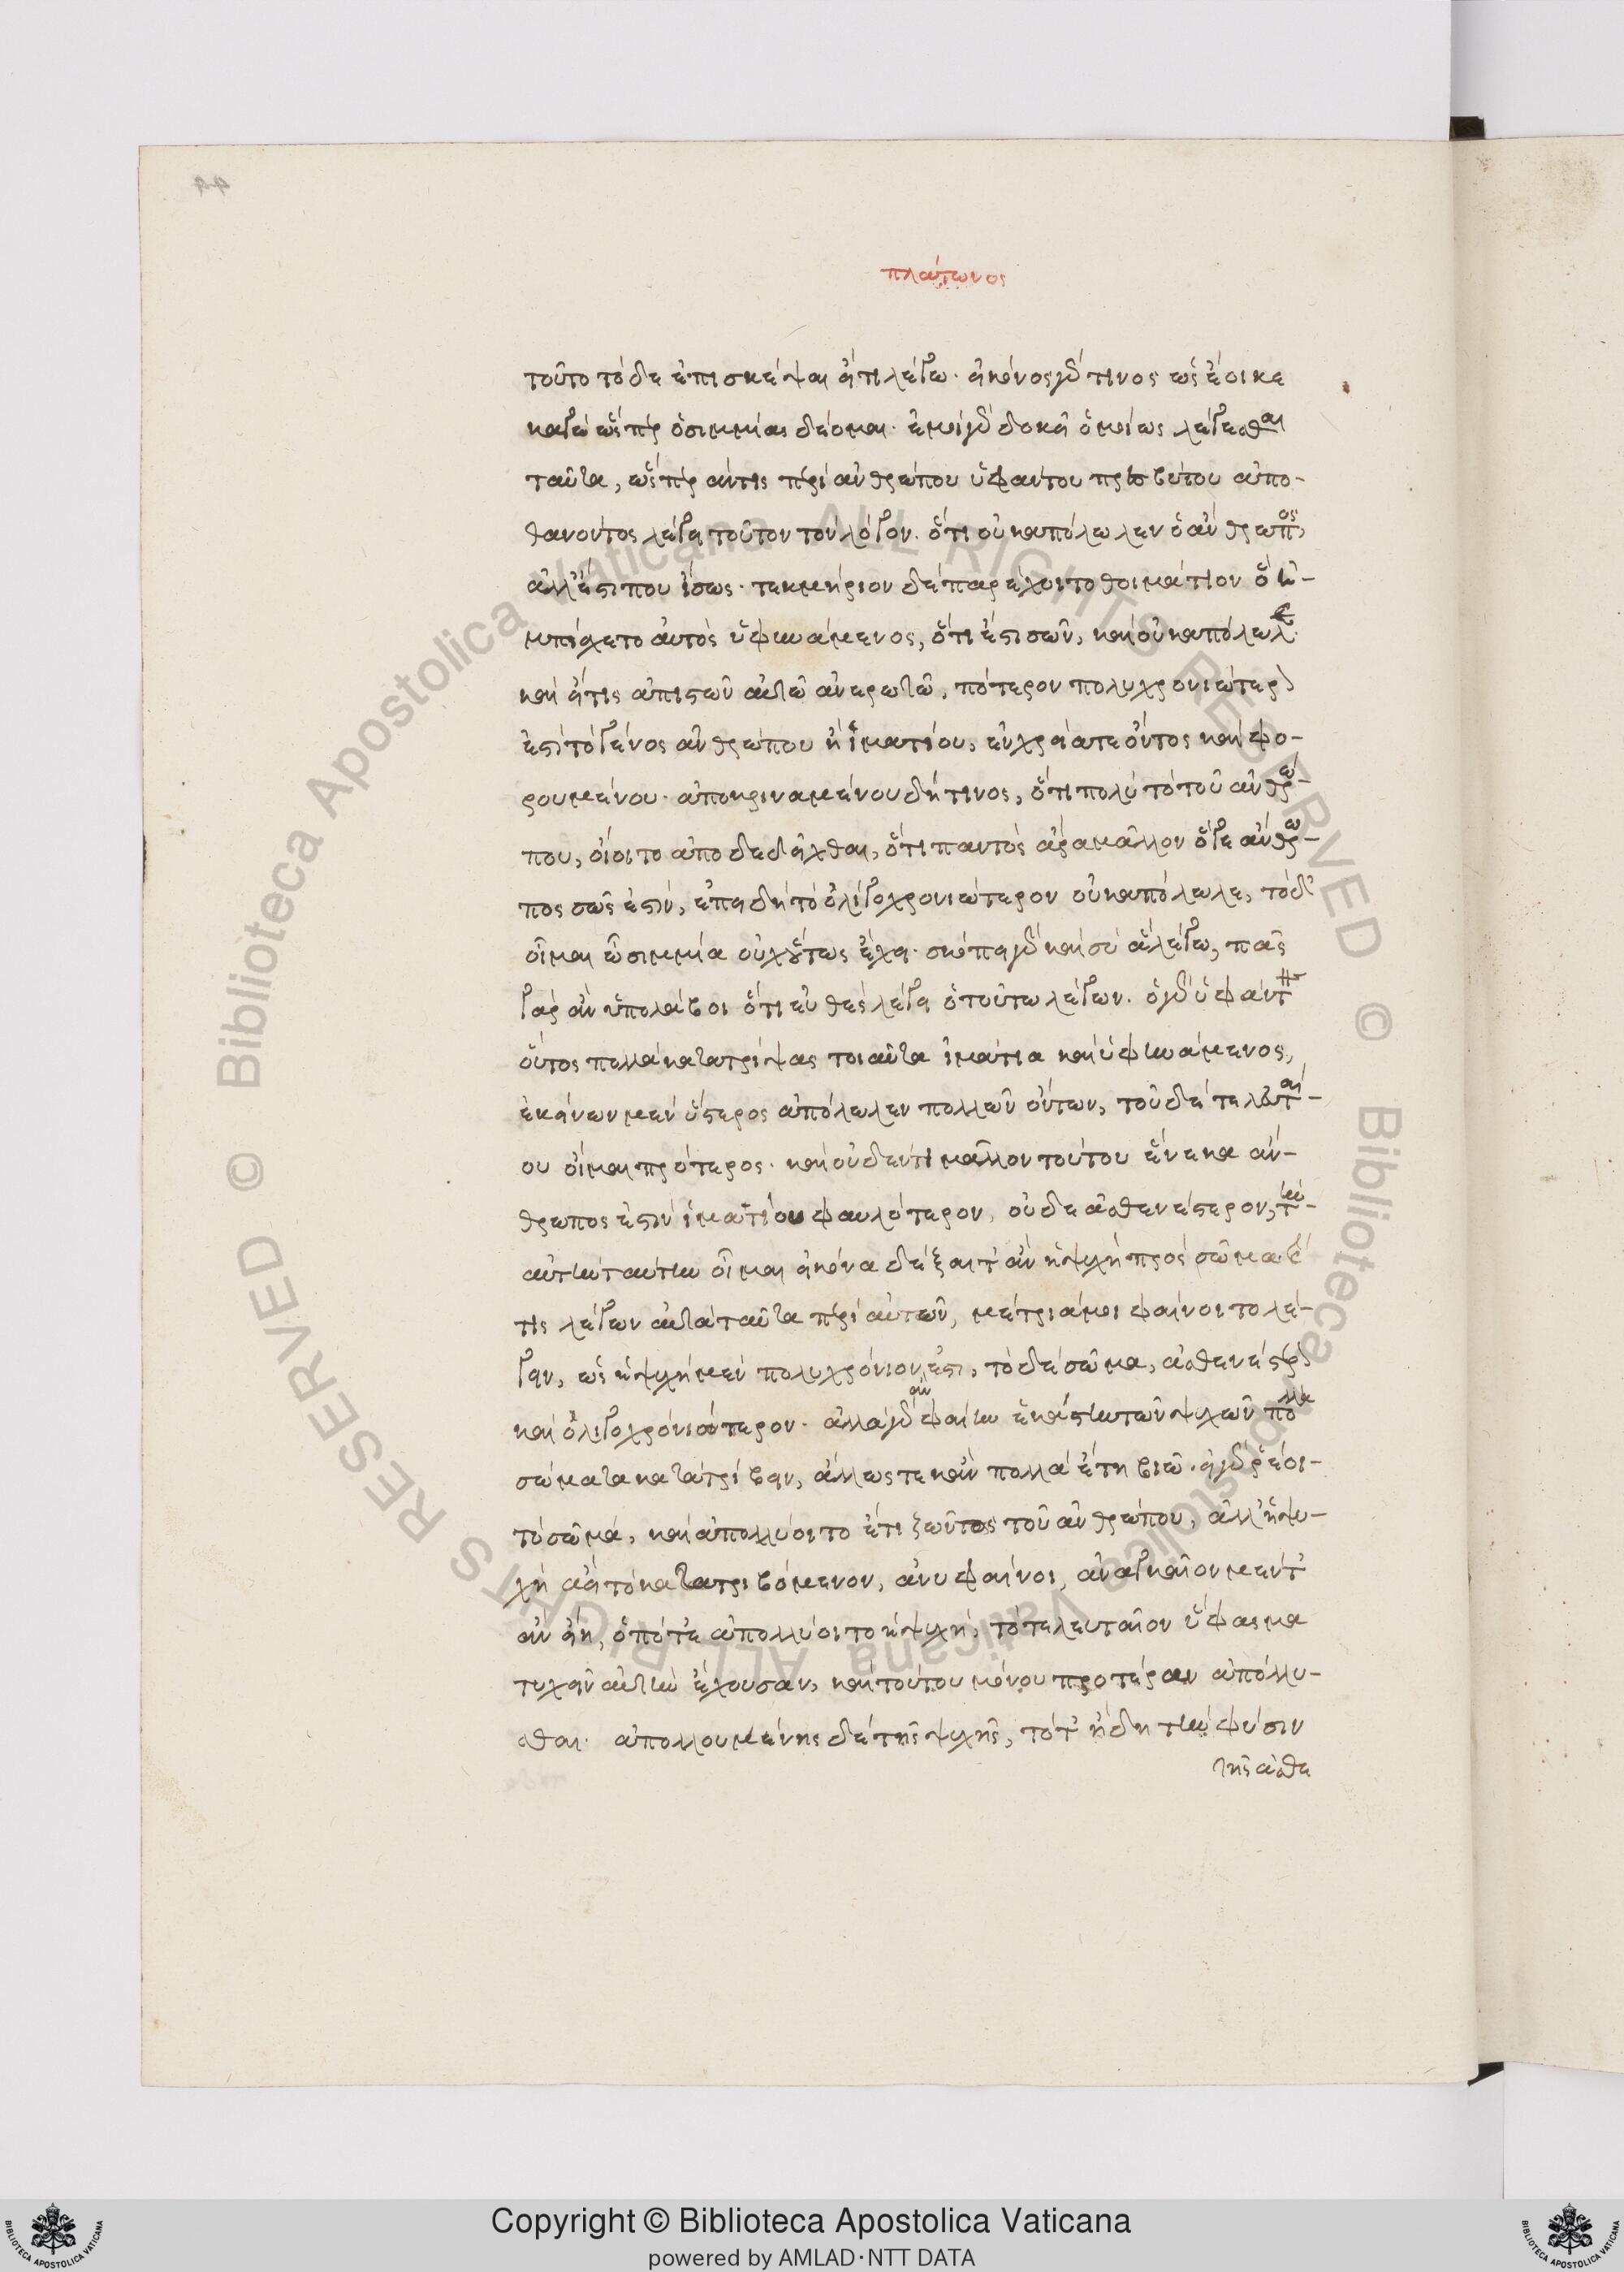 44
πλάτωνος
τοῦτο τόδε ἐπισκέψαι εἴ τι λέγω. εἰκόνος γάρ τινος ὡς ἔοικε
κἀγὼ ὥσπερ ὁ σιμμίας δέομαι. ἐμοὶ γὰρ δοκεῖ ὁμοίως λέγεσθαι
ταῦτα, ὥσπερ ἄν τις περὶ ἀνθρώπου ὑφάντου πρεσβύτου ἀπο-
θανόντος λέγει τοῦτον τὸν λόγον. ὅτι οὐκ ἀπόλωλεν ὁ ἄνθρωπος,
ἀλλ' ἔστι που ἴσως. τεκμήριον δὲ παρέχοιτο θοἰμάτιον ὃ ἠ-
μπίσχετο αὐτὸς ὑφηνάμενος, ὅτι ἐστὶ σῶν, καὶ οὐκ ἀπόλωλε.
καὶ εἴ τις ἀπιστῶν αὐτῷ ἀνερωτῷ, πότερον πολυχρονιώτερον
ἐστὶ τὸ γένος ἀνθρώπου ἢ ἱματίου, ἐν χρείᾳ τε ὄντος καὶ φο-
ρουμένου. ἀποκριναμένου δή τινος, ὅτι πολὺ τὸ τοῦ ἀνθρώ-
που, οἴοιτο ἀποδεδεῖχθαι, ὅτι παντὸς ἄρα μᾶλλον ὅ γε ἄνθρω-
πος σῶς ἐστίν, ἐπειδὴ τὸ ὀλιγοχρονιώτερον οὐκ ἀπόλωλε, τὸ δ'
οἶμαι ὦ σιμμία οὐχ οὕτως ἔχει. σκόπει γὰρ καὶ σὺ ἃ λέγω, πᾶς
γὰρ ἂν ὑπολάβοι ὅτι εὔηθες λέγει ὁ τοῦτο λέγων. ὁ γὰρ ὑφάντης
οὗτος πολλὰ κατατρίψας τοιαῦτα ἱμάτια καὶ ὑφηνάμενος,
ἐκείνων μὲν ὕστερος ἀπόλωλεν πολλῶν ὄντων, τοῦ δὲ τελευταί-
ου οἶμαι πρότερος. καὶ οὐδέν τι μᾶλλον τούτου ἕνεκα ἄν-
θρωπος ἐστὶν ἱματίου φαυλότερον, οὐδὲ ἀσθενέστερον, τὴν-
αὐτὴν ταύτην οἶμαι εἰκόνα δέξαιτ' ἂν ἡ ψυχὴ πρὸς σῶμα. καί
τις λέγων αὐτὰ ταῦτα περὶ αὐτῶν, μέτρι' ἄμοι φαίνοιτο λέ-
γειν, ὡς ἡ ψυχὴ μὲν πολυχρόνιον ἐστι, τὸ δὲ σῶμα, ἀσθενέστερον
καὶ ὀλιγοχρονιώτερον. ἀλλὰ γὰρ ἂν φαίη ἑκάστην τῶν ψυχῶν πολλὰ
σώματα κατατρίβειν, ἄλλως τε κἂν πολλὰ ἔτη βιῷ. εἰ γὰρ ῥέοι-
τὸ σῶμα, καὶ ἀπολλύοιτο ἔτι ζῶντος τοῦ ἀνθρώπου, ἀλλ' ἡ ψυ-
χὴ ἀεὶ τὸ κατατριβόμενον, ἀνυφαίνοι, ἀναγκαῖον μέντ'
ἂν εἴη, ὁπότε ἀπολλύοιτο ἡ ψυχή, τὸ τελευταῖον ὕφασμα
τυχεῖν αὐτὴν ἔχουσαν, καὶ τούτου μόνου προτέραν ἀπόλλυ-
σθαι. ἀπολλουμένης δὲ τῆς ψυχῆς, τότ' ἤδη τὴν φύσιν
τῆς ἀσθε
Copyright © Biblioteca Apostolica Vaticana
powered by AMLAD·NTT DATA